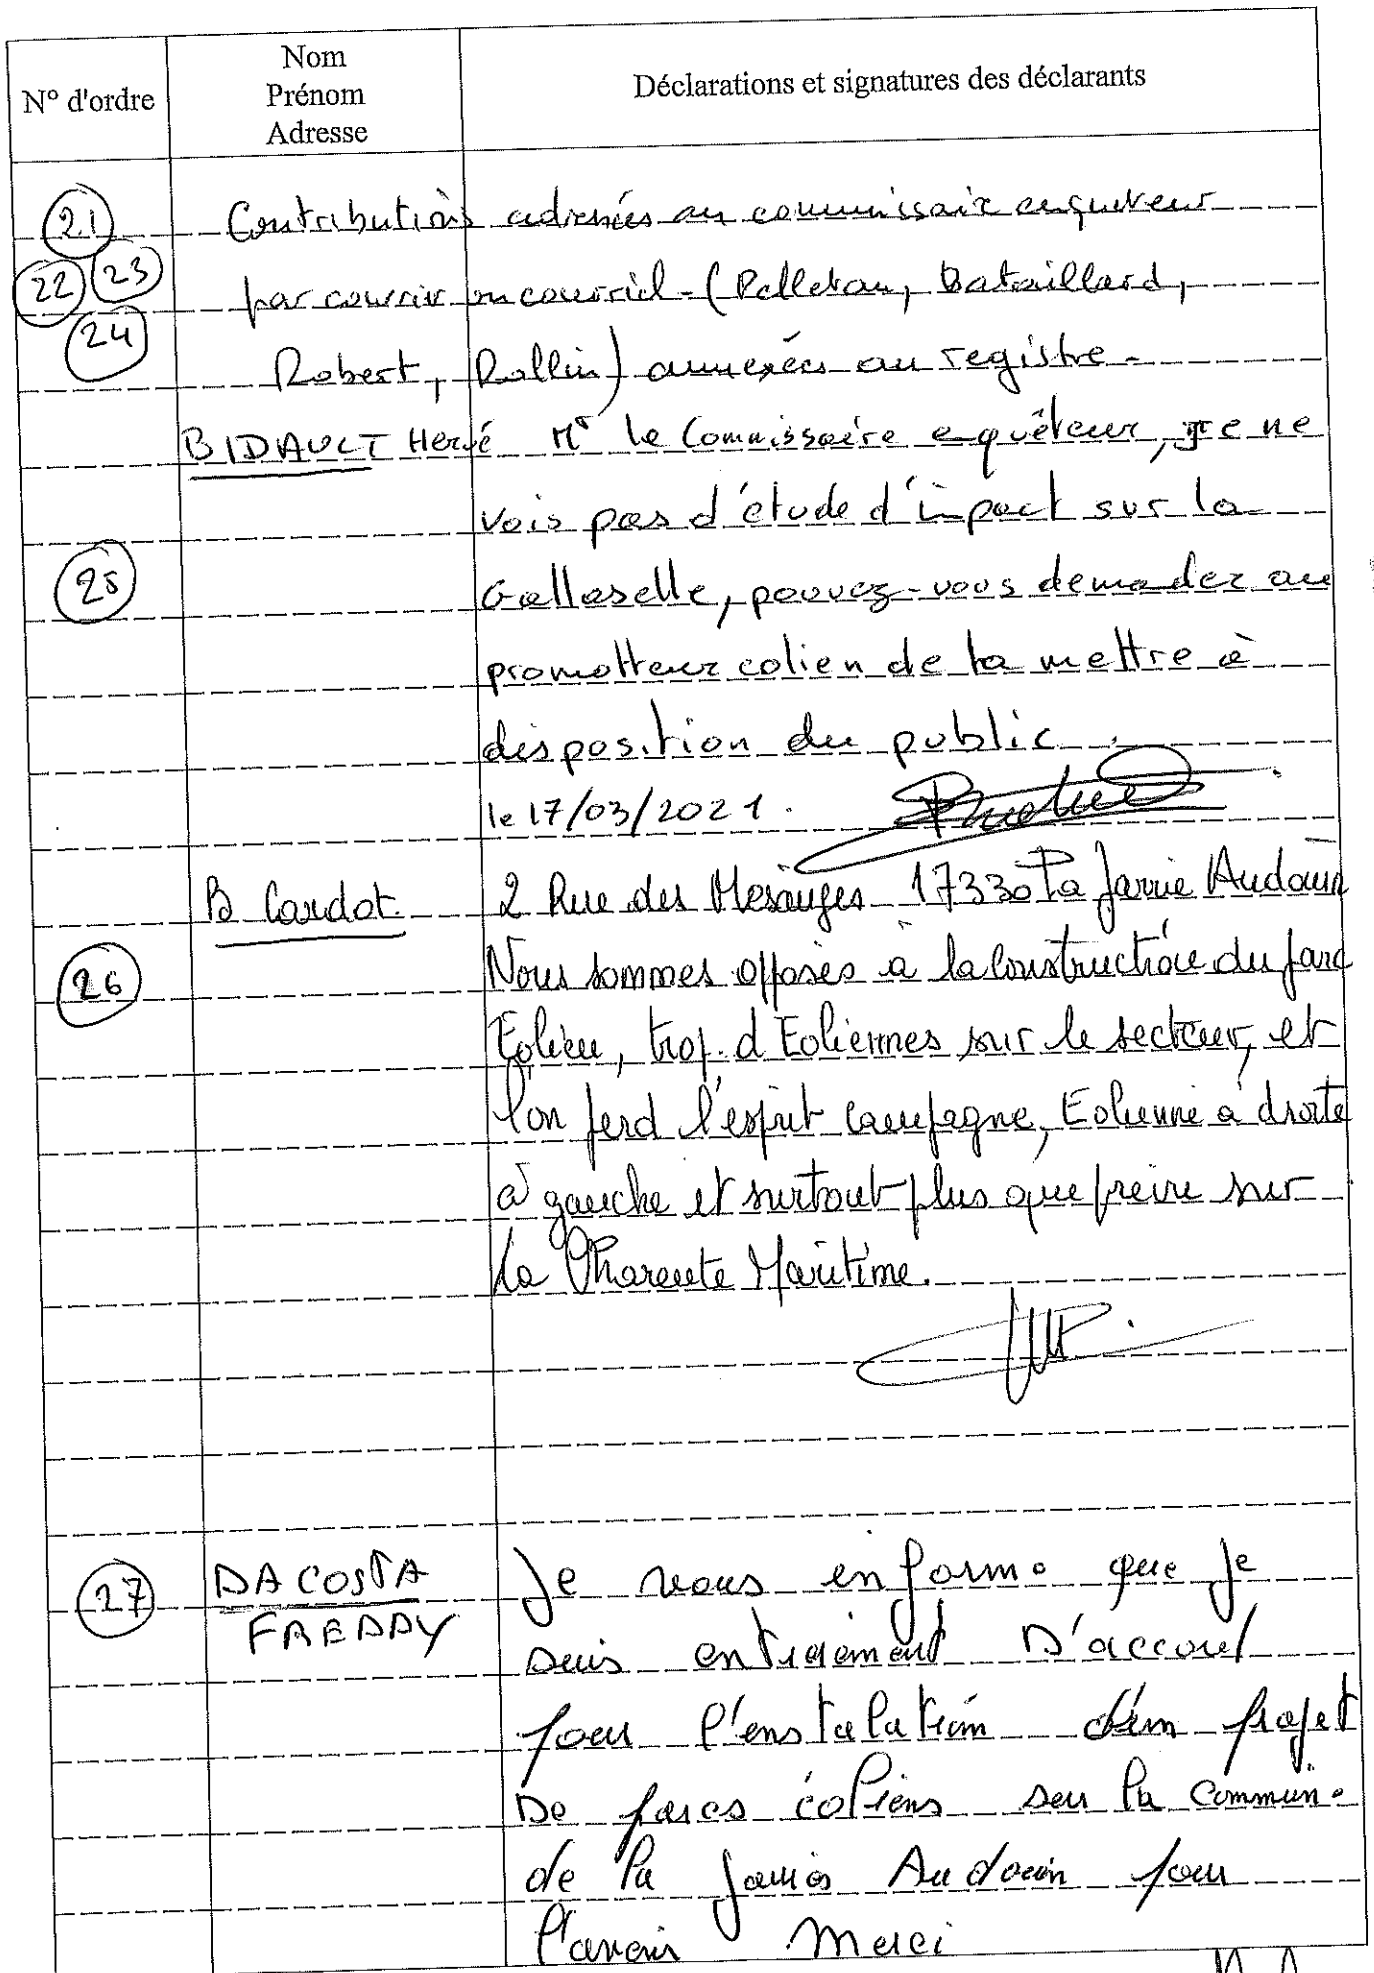 N° d'ordre
Nom
Prénom
Adresse
Déclarations et signatures des déclarants
21
Contributions adressées au commissaire enquêteur
22 23
par courrier ou courriel - (Pelletan, Bataillard,
24
Robert, Rollin) annexées au registre -
BIDAULT Hervé Mr le Commissaire enquêteur, Je ne
vois pas d'étude d'impact sur la
25
Gallaselle, pouvez-vous demander au
promotteur eolien de la mettre à
disposition du public.
le 17/03/2021.
B Cardot. 2 Rue des Mesanges 17330 La Jarrie Audouin
26
Nous sommes opposés à la construction du parc
Eolien, trop d Eoliennes sur le secteur, et
l'on perd l'esprit campagne, Eolienne à droite
à gauche et surtout plus que freine sur
la Charente Maritime.
27
DA COSTA
FREDDY
Je vous enforme que je
suis entierement D'accord
pour l'enstalation d'un projet
De parcs éoliens sur la commune
de la Jarrie Audouin pour
l'avenir Merci